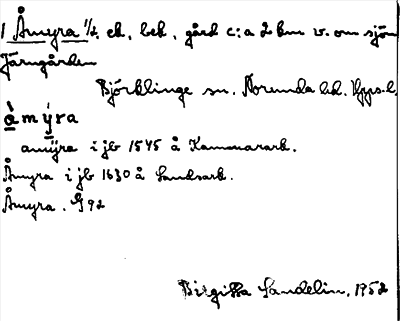 1 Åmyra 1/2, ek, beb, gård c:a 2 km v. om sjön
Järngården
Björklinge sn. Norunda hd. Upps.l.
àmýra
amÿra i jb 1545 å Kammarark.
Åmyra i jb 1630 å Landsark.
Åmyra. G 92
Birgitta Sandelin, 1952